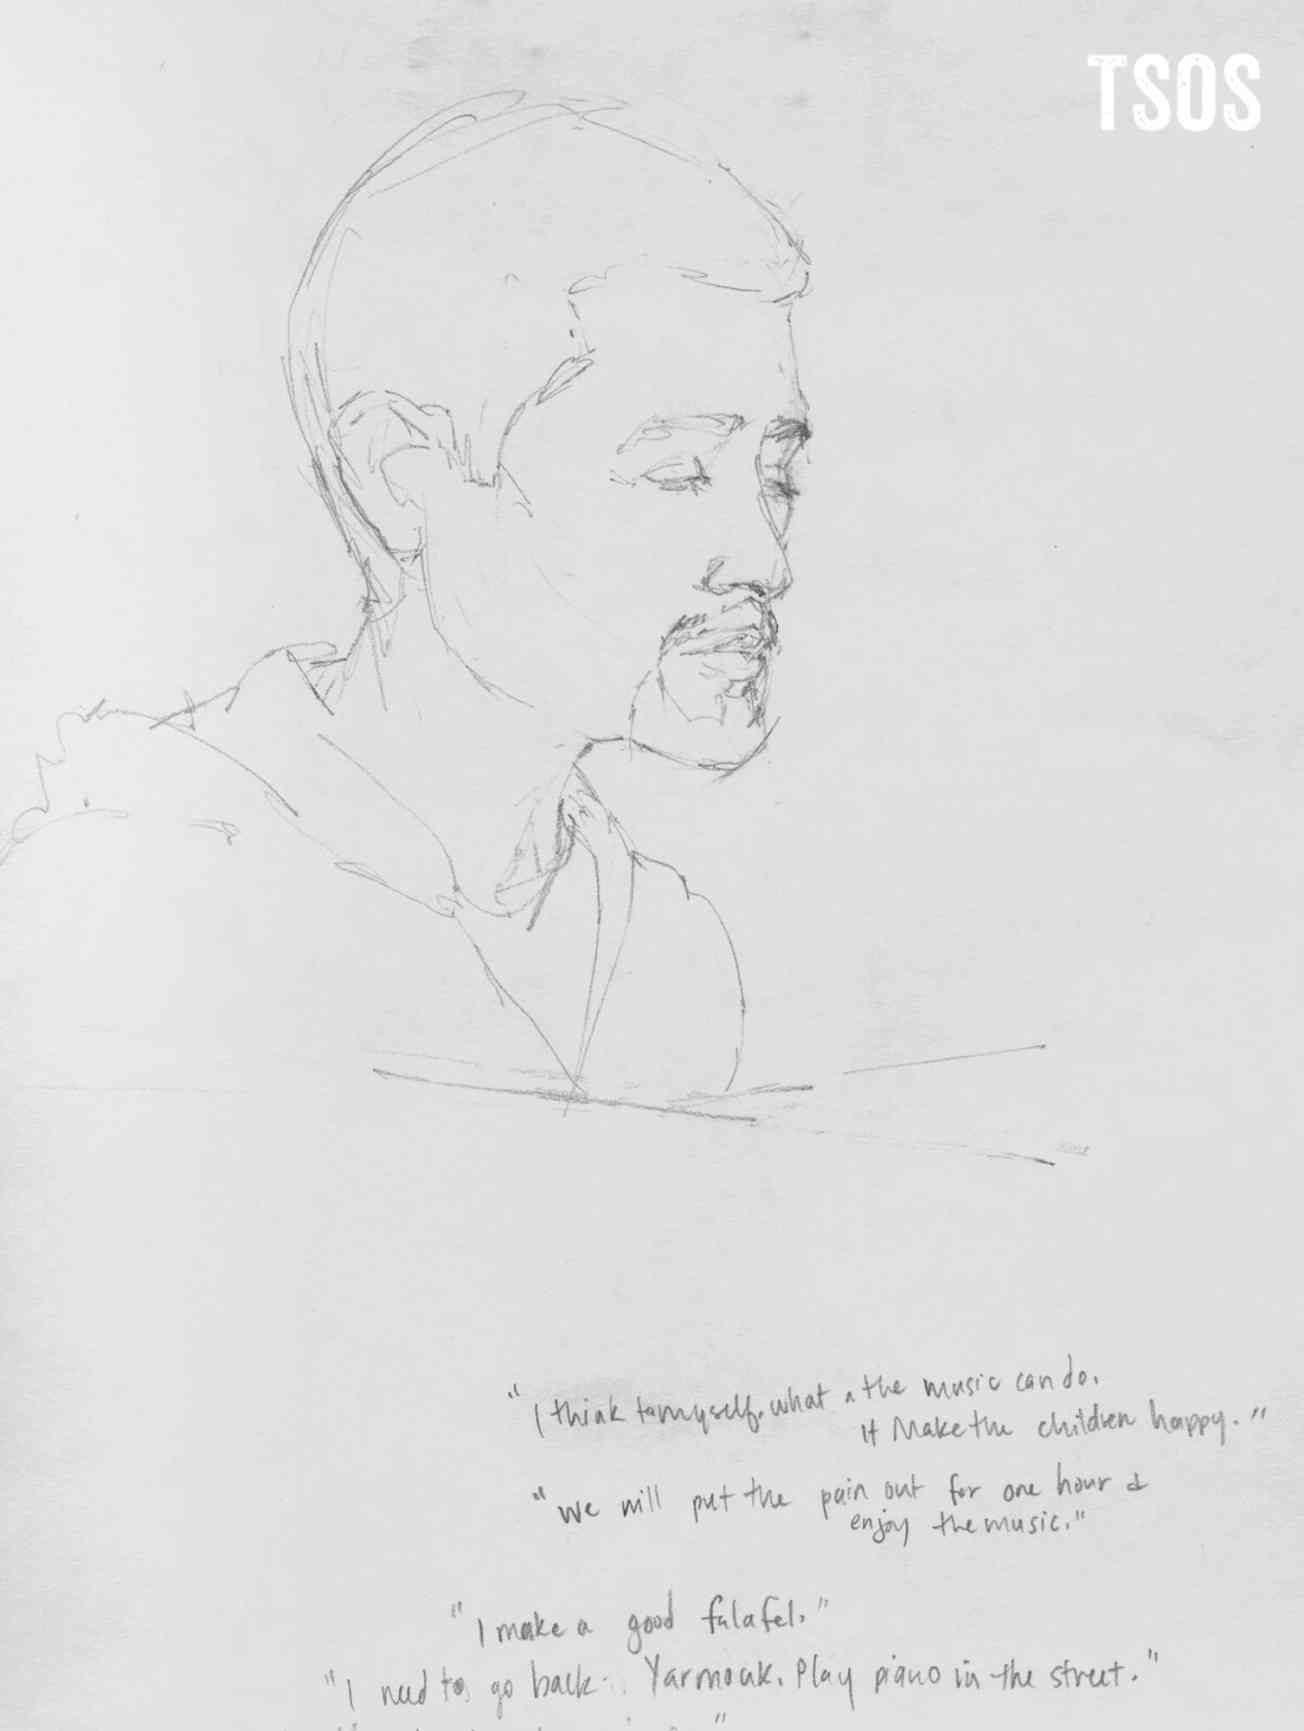 TSOS
"I think to myself. what the music can do.
It Make the children happy."
"We will put the pain out for one hour &
enjoy the music."
"I make a good falafel."
"I need to go back. Yarmouk. Play piano in the street."